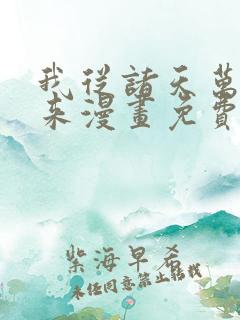 我從諸天萬
來漫畫免費
紫海早希
未经同意禁止转载